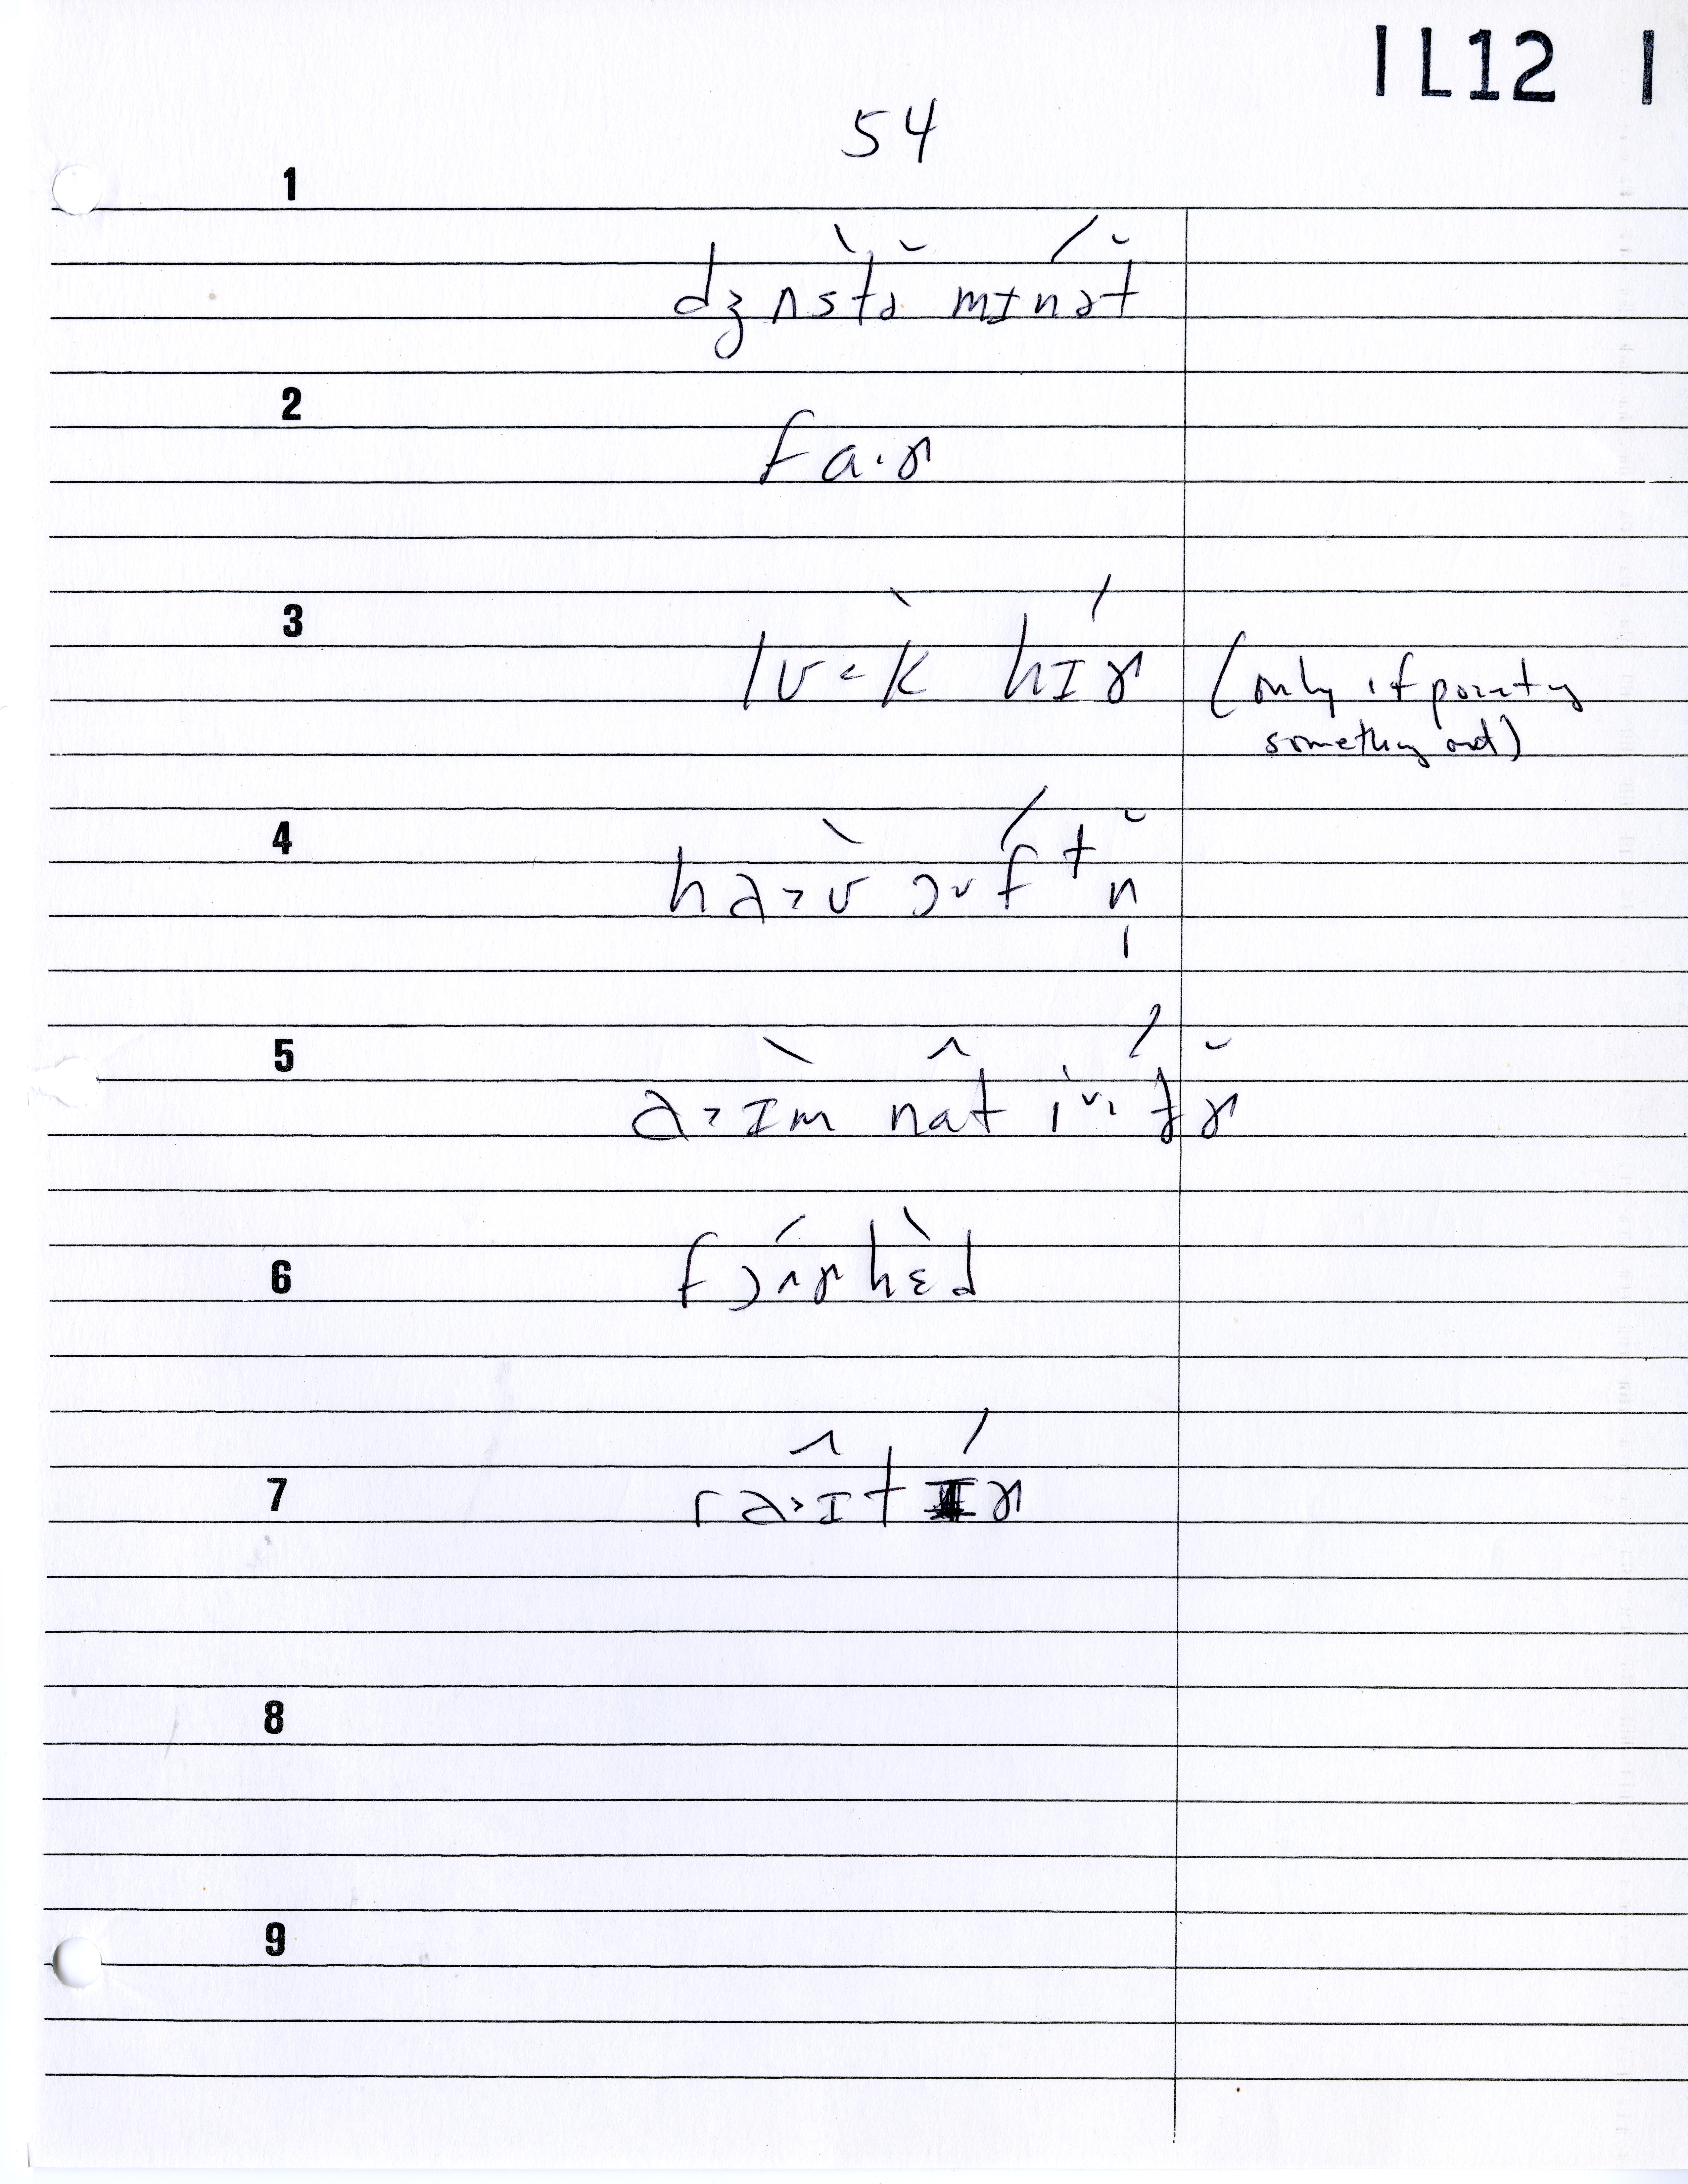 IL12 1
54
1
dʒʌ̀stə̆ mɪ́nə̆t
2
fa·ɚ
3
lʊ˂k̀ hɪ́ɚ (only if pointing
something out)
4
ha˃ʊ̀ ɔᵛf́tn̩̆
5
a˃ɪ̀m nât iᵛ·t̬́ɚ̆
6
fɔ́ʌɚhɛ̀d
7
ra˃ɪ̂t ɪ́ɚ
8
9